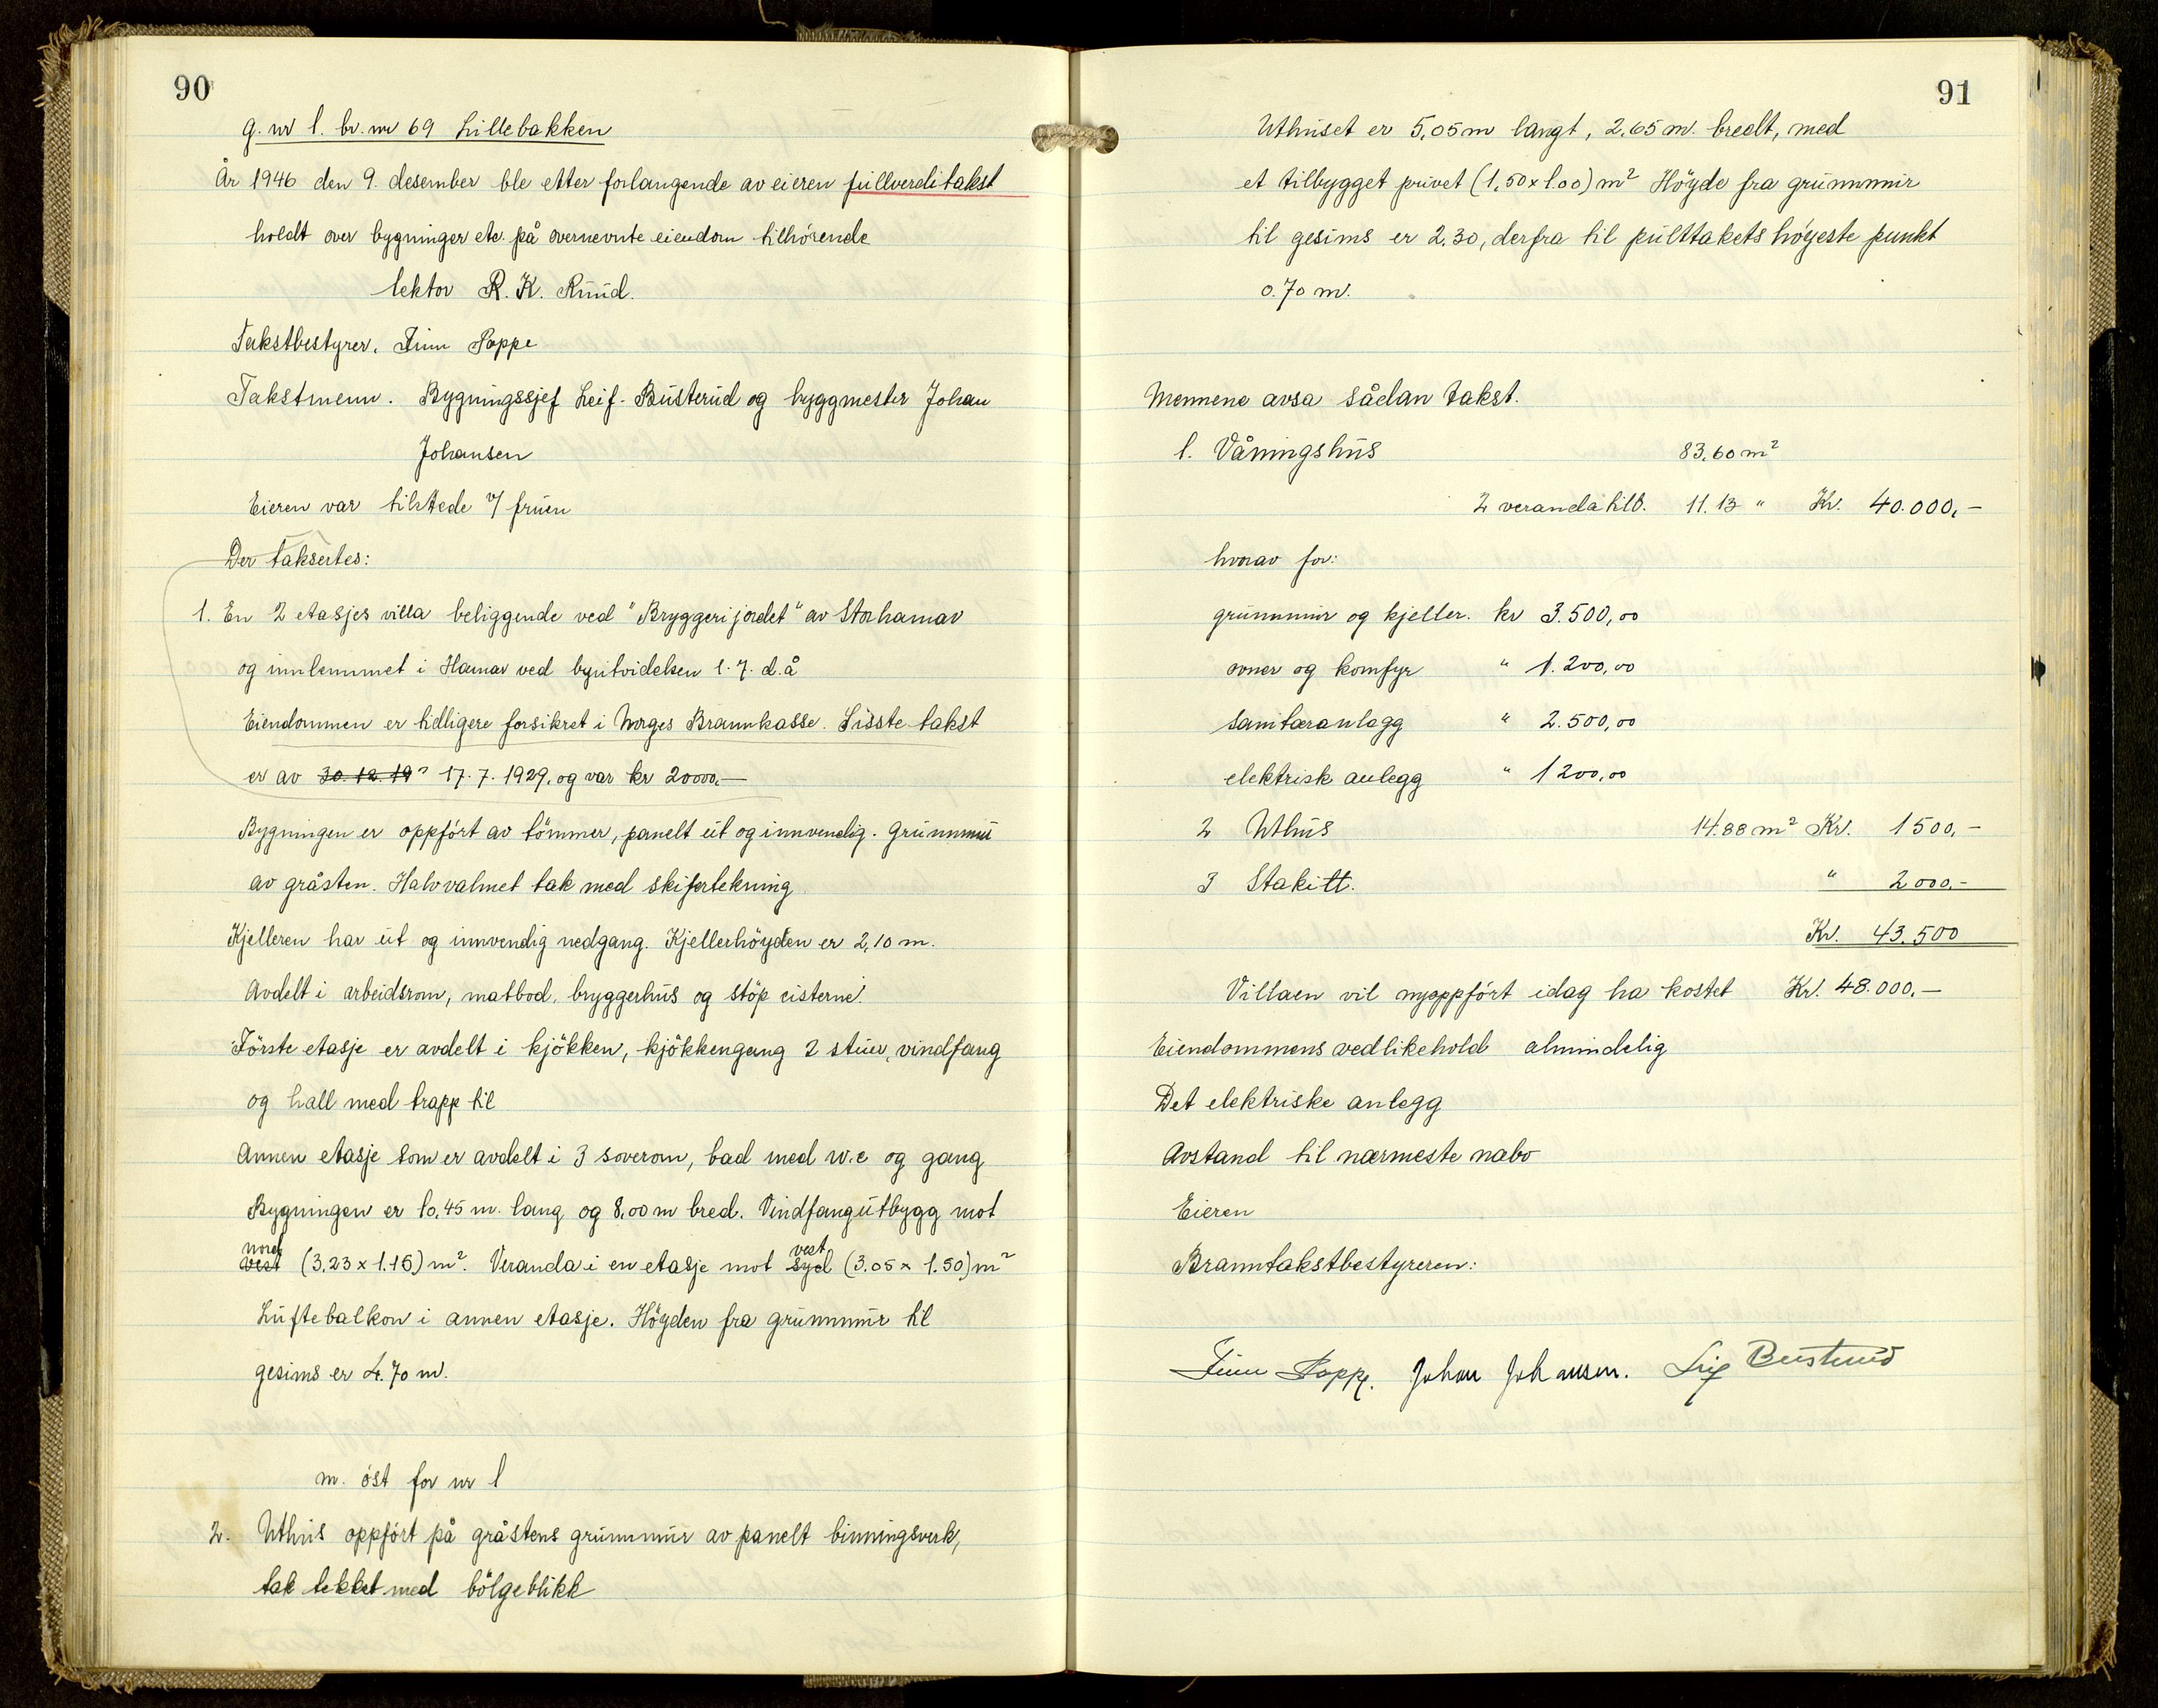 90
g. nr 1. br. nr 69 Lillebakken
År 1946 den 9. desember ble etter forlangende av eieren fullverditakst
holdt over bygninger etc. på overnevnte eiendom tilhörende
lektor R. K. Ruud.
Takstbestyrer. Finn Poppe
Takstmenn. Bygningssjef Leif. Busterud og byggmester Johan
Johansen
Eieren var tilstede v/ fruen
Der taksertes:
1. En 2 etasjes villa beliggende ved "Bryggerijordet" av Storhamar
og innlemmet i Hamar ved byutvidelsen 1.7. d.å
Eiendommen er tidligere forsikret i Norges Brannkasse. Sisste takst
er av 30.12.19? 17.7.1929. og var kr 20000.—
Bygningen er oppfört av tömmer, panelt ut og innvendig. Grunnmur
av gråsten. Halvvalmet tak med skifertekning
Kjelleren har ut og innvendig nedgang. Kjellerhöyden er 2,10 m.
Avdelt i arbeidsrom, matbod, bryggerhus og stöp cisterne.
Förste etasje er avdelt i kjökken, kjökkengang 2 stuer, vindfang
og hall med trapp til
Annen etasje som er avdelt i 3 soverom, bad med w.c og gang
Bygningen er 10,45 m. lang og 8,00 m bred. Vindfangutbygg mot
nord vest
vest (3,23 x 1.15) m². Veranda i en etasje mot syd (3.05 x 1.50) m²
Luftebalkon i annen etasje. Höyden fra grunnmur til
gesims er 4.70 m.
m. öst for nr 1
2. Uthus oppfört på gråstens grunnmur av panelt binningsverk,
tak tekket med bölgeblikk
91
Uthuset er 5,05 m langt, 2,65 m. bredt, med
et tilbygget privet (1,50 x 1.00) m² Höyde fra grunnmur
til gesims er 2,30, derfra til pulttakets höyeste punkt
0.70 m.
Mennene avsa sådan takst.
1. Våningshus 83,60 m²
2 veranda tilb. 11.13 " Kr. 40.000,-
hvorav for:
grunnmur og kjeller. kr 3.500,00
ovner og komfyr " 1.200,00
sanitæranlegg " 2.500,00
elektrisk anlegg " 1200,00
2 Uthus 14.88 m² Kr. 1500,-
3 Stakitt. " 2000,-
Kr. 43.500
Villaen vil nyoppfört idag ha kostet Kr. 48.000.—
Eiendommens vedlikehold almindelig
Det elektriske anlegg
Avstand til nærmeste nabo
Eieren
Branntakstbestyreren:
Finn Poppe. Johan Johansen. Leif Busterud